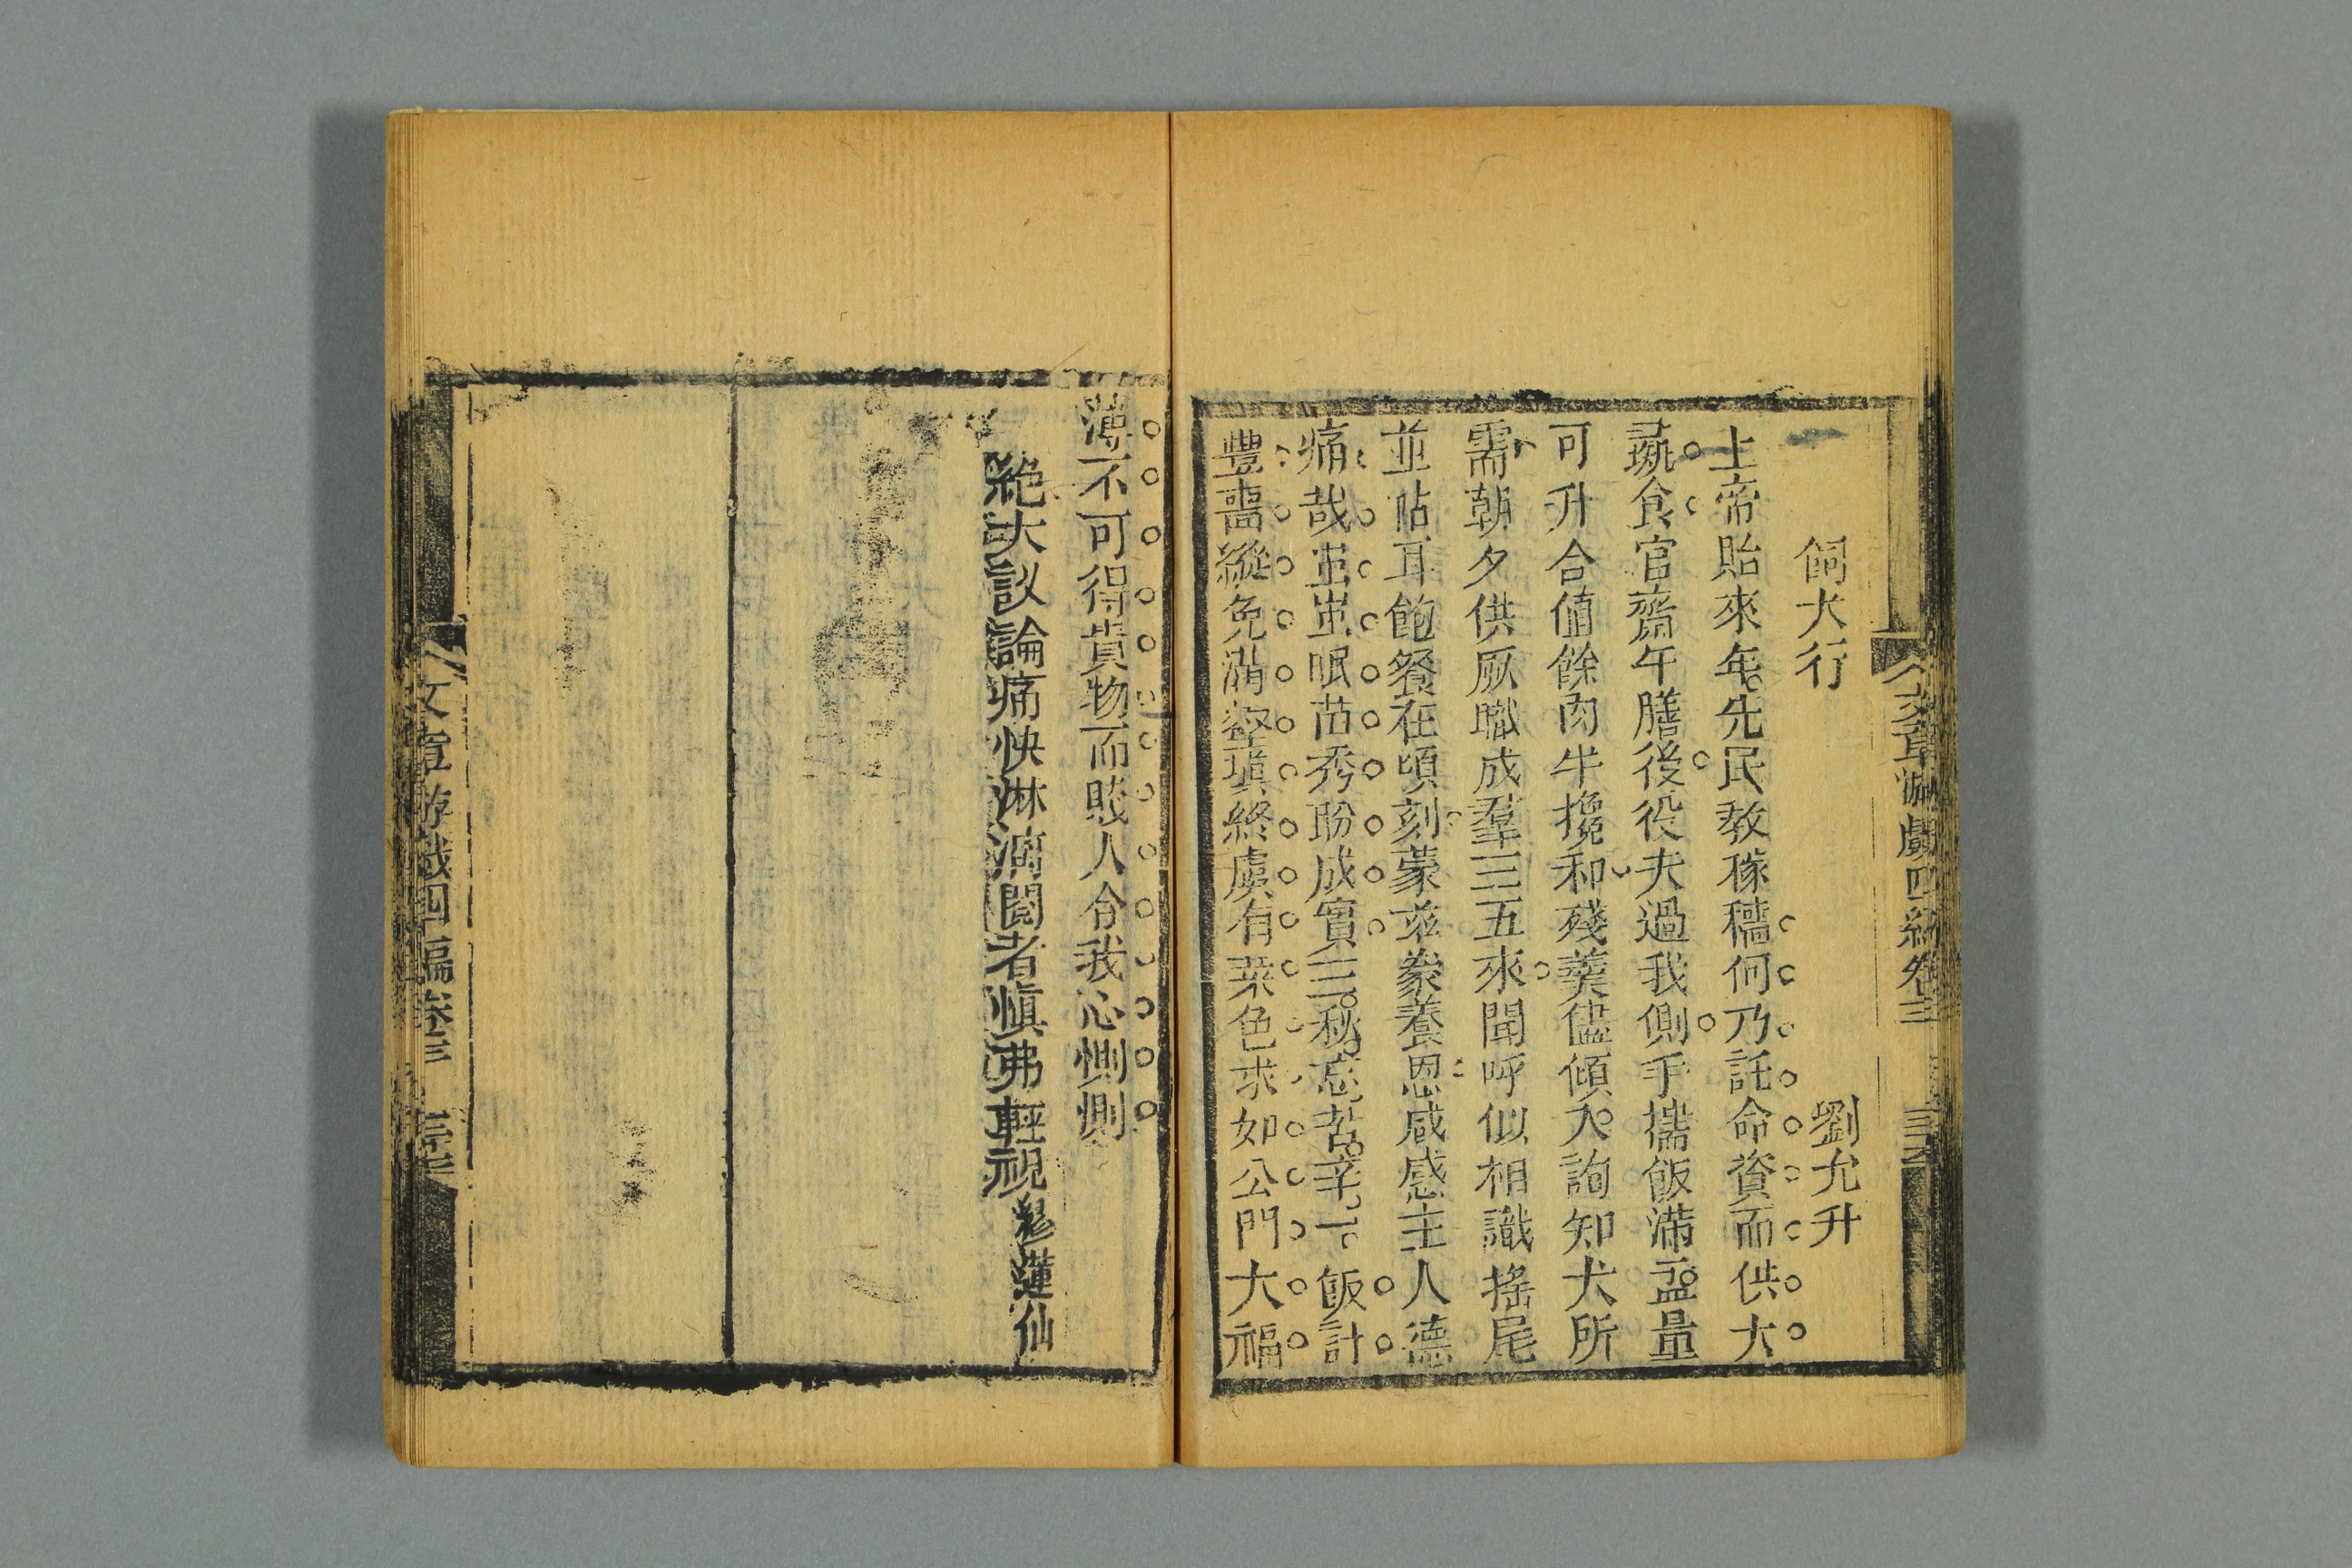 文章游戲四編卷三
飼犬行　劉允升
上帝貽來年先民教稼穡何乃託命資而供犬
彘食官齋午膳後役夫過我側手攜飯滿盂量
可升合值餘肉半攙和殘羹儘傾入詢知犬所
需朝夕供厥職成羣三五來聞呼似相識搖尾
並帖耳飽餐在頃刻蒙茲豢養恩咸感主人德
痛哉蚩蚩眠苗秀盼成實三秋忘苦辛一飯計
豐嗇縱免溝壑填終虞有菜色求如公門犬福
薄不可得貴物而賤人令我心惻惻
絕大議論痛快淋漓閱者慎弗輕視 繆蓮仙
文章游戲四編卷三